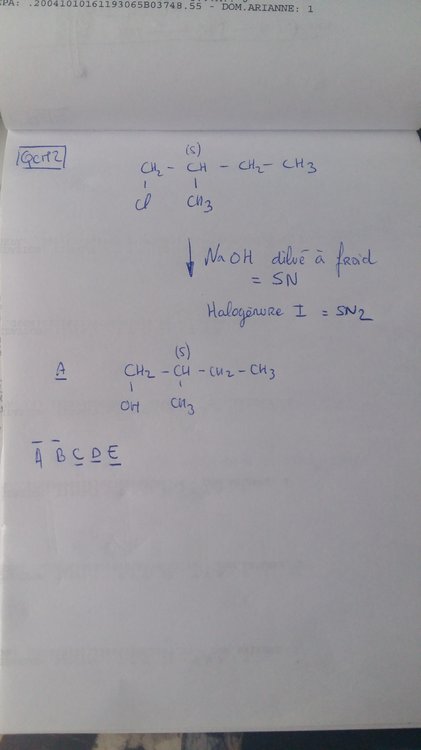 EPA: .20041010161193065B03748.55 - DOM.ARIANNE: 1
QCM2
(S)
CH2 - CH - CH2 - CH3
Cl CH3
NaOH dilué à froid
= SN
Halogénure I = SN2
(S)
A CH2 - CH - CH2 - CH3
OH CH3
A B C D E